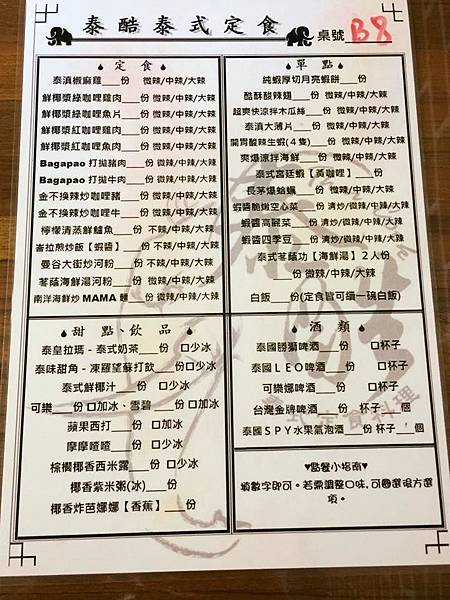 泰酷泰式定食
桌號 B8
定食
泰滇椒麻雞____份 微辣/中辣/大辣
鮮椰漿綠咖哩雞肉____份 微辣/中辣/大辣
鮮椰漿綠咖哩魚片____份 微辣/中辣/大辣
鮮椰漿紅咖哩雞肉____份 微辣/中辣/大辣
鮮椰漿紅咖哩魚片____份 微辣/中辣/大辣
Bagapao 打拋豬肉____份 微辣/中辣/大辣
Bagapao 打拋牛肉____份 微辣/中辣/大辣
金不換辣炒咖哩豬____份 微辣/中辣/大辣
金不換辣炒咖哩牛____份 微辣/中辣/大辣
檸檬清蒸鮮鱸魚____份 不辣/中辣/大辣
崙拉煎炒飯【蝦醬】____份 不辣/中辣/大辣
曼谷大街炒河粉____份 不辣/中辣/大辣
荖蔭海鮮湯河粉____份 微辣/中辣/大辣
南洋海鮮炒 MAMA 麵____份 微辣/中辣/大辣
單點
純蝦厚切月亮蝦餅____份
酷酥酸辣翅____份 微辣/中辣/大辣
超爽快涼拌木瓜絲____份 微辣/中辣/大辣
泰滇大薄片____份 微辣/中辣/大辣
開胃酸辣生蝦(4隻)____份 微辣/中辣/大辣
爽爆涼拌海鮮____份 微辣/中辣/大辣
泰式宮廷蝦【黃咖哩】____份
長茅爆蛤蠣____份 微辣/中辣/大辣
蝦醬脆嫩空心菜____份 清炒/微辣/中辣/大辣
蝦醬高麗菜____份 清炒/微辣/中辣/大辣
蝦醬四季豆____份 清炒/微辣/中辣/大辣
泰式荖蔭功【海鮮湯】2人份
____份 微辣/中辣/大辣
白飯____份(定食皆可續一碗白飯)
甜點、飲品
泰皇拉瑪-泰式奶茶____份 口少冰
泰味甜角-凍羅望蘇打飲____份口少冰
泰式鮮椰汁____份 口少冰
可樂____份 口加冰、雪碧____份 口加冰
蘋果西打____份 口加冰
摩摩喳喳____份 口少冰
棕櫚椰香西米露____份 口少冰
椰香紫米粥(冰)____份
椰香炸芭娜娜【香蕉】____份
酒類
泰國勝獅啤酒____份 口杯子
泰國LEO啤酒____份 口杯子
可樂娜啤酒____份 口杯子
台灣金牌啤酒____份 杯子____個
泰國SPY水果氣泡酒____份 杯子____個
♥點餐小指南♥
填數字即可。若需調整口味,可圈選後方選
項。